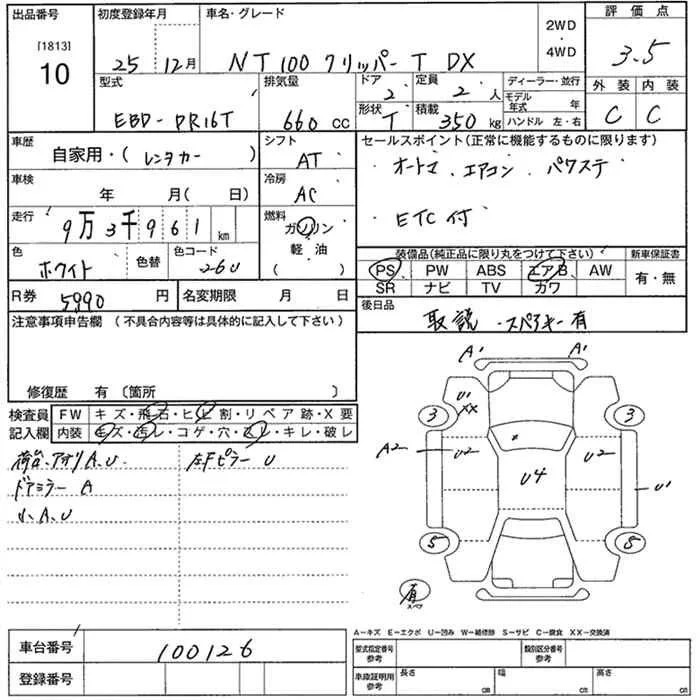 出品番号
[1813]
10
初度登録年月
25年 12月
車名・グレード
NT100 クリッパー T DX
2WD
・
4WD
評価点
3.5
外装 内装
C C
型式
EBD-DR16T
排気量
660 cc
ドア
2
定員
2人
形状
T
積載
350 kg
ディーラー・並行
モデル年式 年
ハンドル 左・右
車歴
自家用・( レンタカー )
シフト
AT
セールスポイント(正常に機能するものに限ります)
オートマ . エアコン . パワステ
ETC付
車検
年 月( 日)
冷房
AC
走行
9万3千961 km
燃料
ガソリン
軽・油
( )
色
ホワイト
色替
色コード
26U
装備品(純正品に限り丸をつけて下さい)
新車保証書
PS PW ABS エアB AW
有・無
SR ナビ TV カワ
R券
5990 円
名変期限 月 日
後日品
取説 . スペアキー有
注意事項申告欄 (不具合内容等は具体的に記入して下さい)
修復歴 有〔箇所 〕
検査員
記入欄
FW キズ・飛石・ヒビ割・リペア跡・X要
内装 キズ・汚レ・コゲ・穴・スレ・キレ・破レ
荷台、アオリA.U.
左Fピラー U
ドアミラー A
小A.U
A'
A'
U'
XX
3
3
A2
U2
U4
U2
U'
5
5
有
スペア
A-キズ E-エクボ U-凹み W-補修跡 S-サビ C-腐食 XX-交換済
車台番号
100126
登録番号
型式指定番号
参考
類別区分番号
参考
車庫証明用
参考
長さ cm
幅 cm
高さ cm